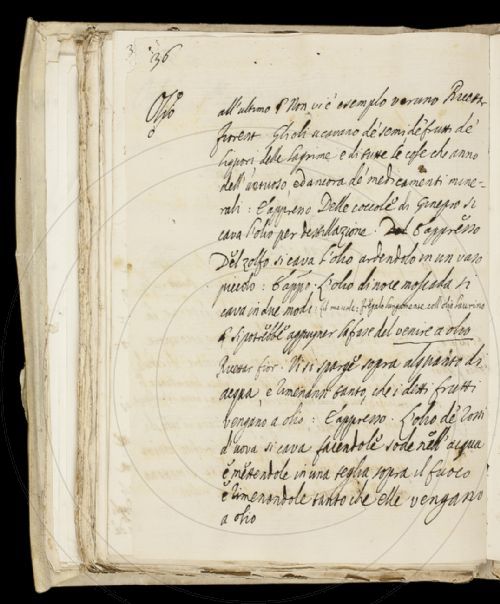 36
Olio
all'ultimo e Non vi è esempio veruno Ricettar
fiorent Gli oli si cavano de semi de frutti de
liquori delle lagrime e di tutte le cose che anno
dell'untuoso, ed ancora de medicamenti mine-
rali : E appresso Delle coccole di Ginepro si
cava l'olio per destillazione. E appresso
Del zolfo si cava l'olio ardendolo in un vaso
piccolo : E app̃o L'olio di noce moscada si
cava in due modi :
e si potrebbe aggiugner la frase del venire a olio
Ricettar fior : Vi si sparge sopra alquanto di
acqua, e rimenano tanto, che i detti frutti
vengano a olio : E appresso : L'olio de Torli
d'uova si cava facendole sode nell'acqua
e mettendole in una teglia sopra il fuoco
e rimenandole tanto che elle vengano
a olio